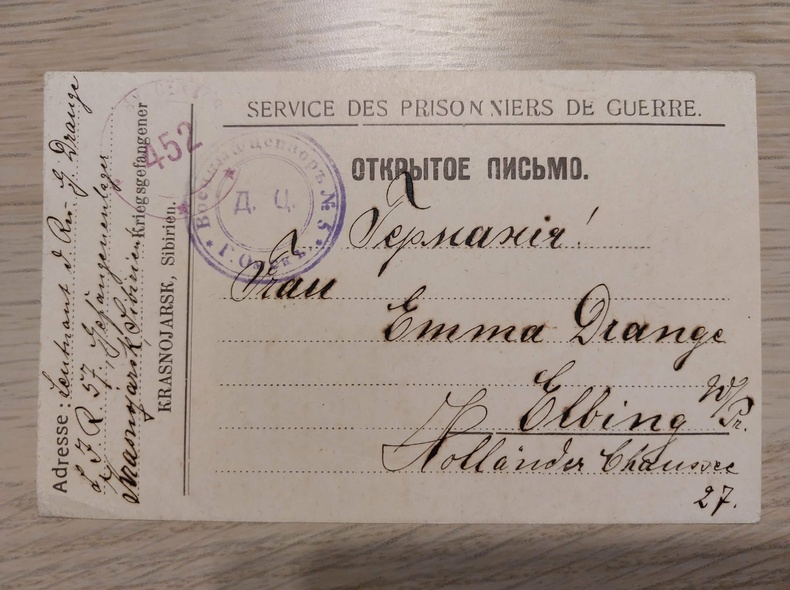 SERVICE DES PRISONNIERS DE GUERRE.
ОТКРЫТОЕ ПИСЬМО.
Германія!
Frau
Emma Drange
Elbing W/Pr.
Holländer Chaussee
27.
452
Военный цензоръ № 5
Д. Ц.
Adresse: Leutnant d. Res. Drange
I R. 57. Gefangenenlager
Krasnojarsk Sibirien
Kriegsgefangener
KRASNOJARSK, Sibirien.